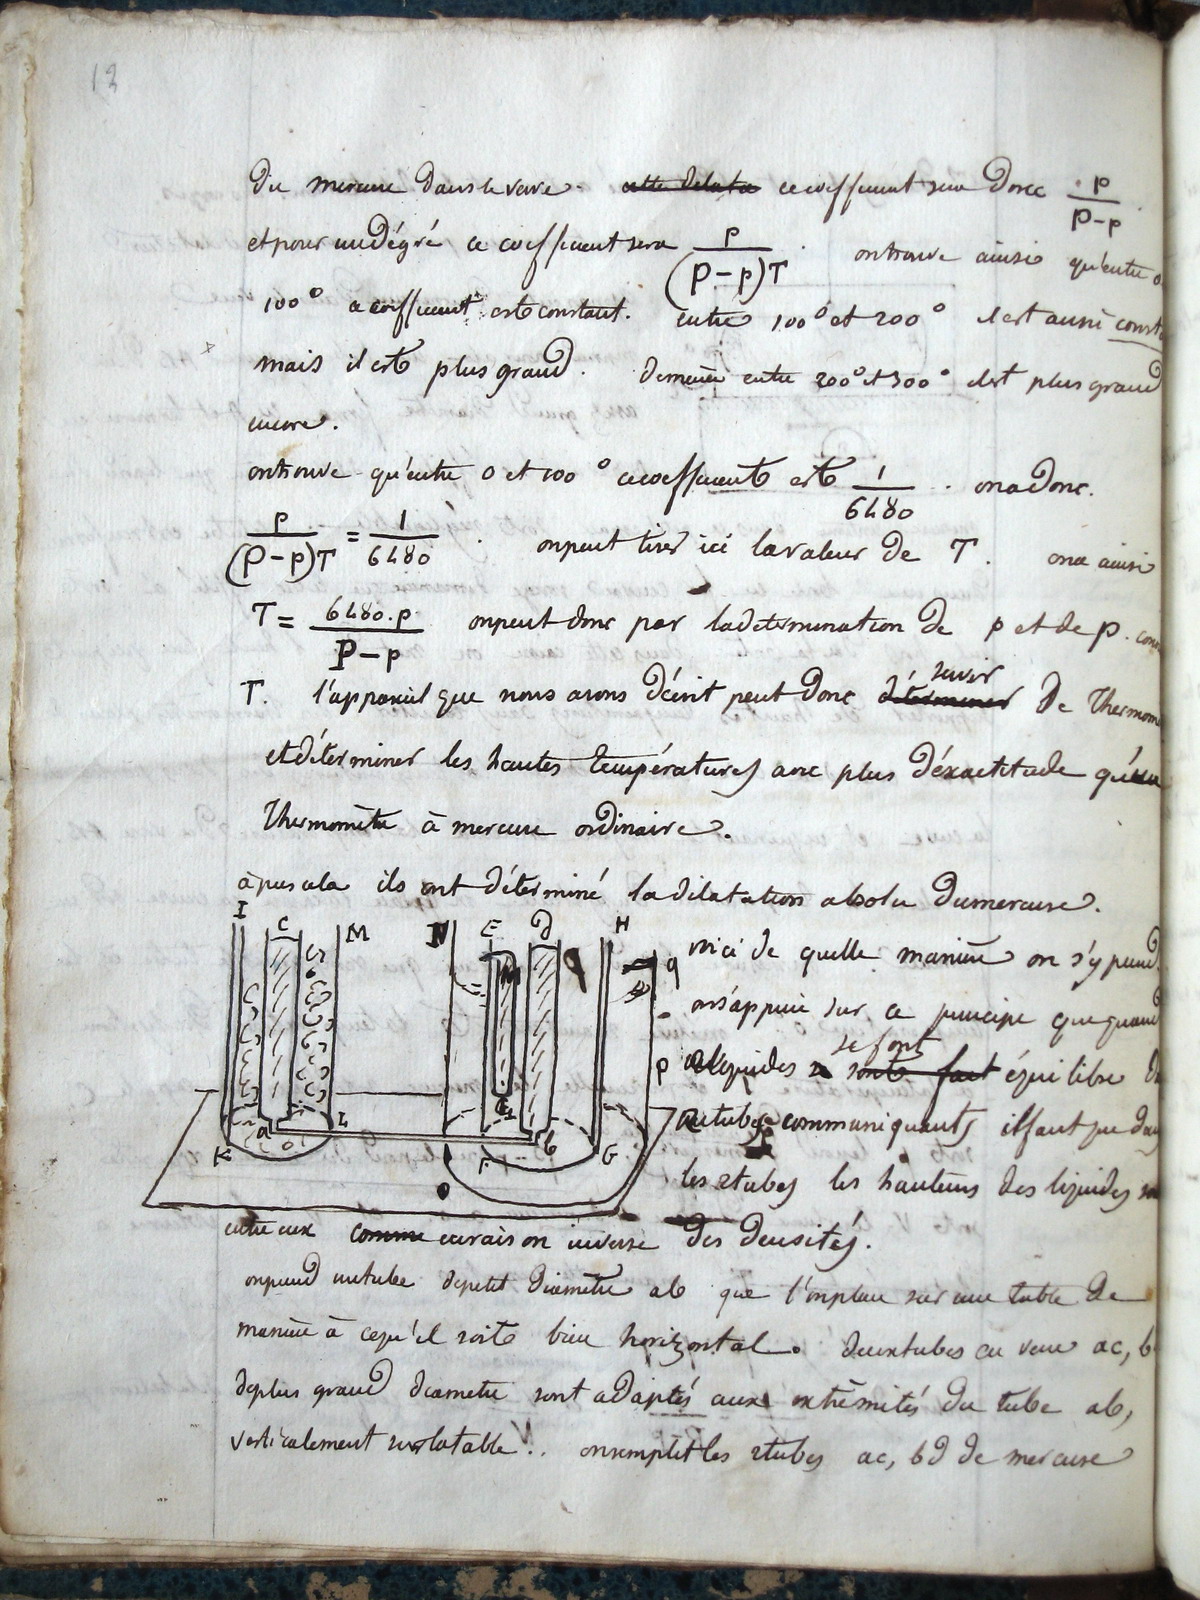 12
du mercure dans le verre. cette dilata ce coefficient sera donc p/(P-p)
et pour un dégré ce coefficient sera p/((P-p)T). on trouve ainsi qu'entre 0
100° ce coefficient est constant. entre 100° et 200° il est aussi const
mais il est plus grand. demême entre 200° et 300° il est plus grand
encore.
on trouve qu'entre 0 et 100° ce coefficient est 1/6480. on a donc.
p/((P-p)T) = 1/6480. on peut tirer ici la valeur de T. on a ainsi
T = 6480.p/(P-p) on peut donc par la détermination de p et de P. conn
T. l'appareil que nous avons décrit peut donc déterminer servir de thermom
et déterminer les hautes températures avec plus d'éxactitude qu'un
thermomètre à mercure ordinaire.
après cela ils ont déterminé la dilatation absolue du mercure.
I C M N E d H
voici de quelle manière on s'y prend.
q
on s'appuie sur ce principe que quand
p
2 liquides sont fait se font équilibre
2 tubes communiquants il faut que dans
K a o L F b G
les 2 tubes les hauteurs des liquides
entre eux comme en raison inverse des densités.
on prend un tube de petit diamètre ab que l'on place sur une table de
manière à ce qu'il soit bien horizontal. deux tubes en verre ac, b
de plus grand diametre sont adaptés aux extrêmités du tube ab,
verticalement sur la table. on remplit les 2 tubes ac, bd de mercure